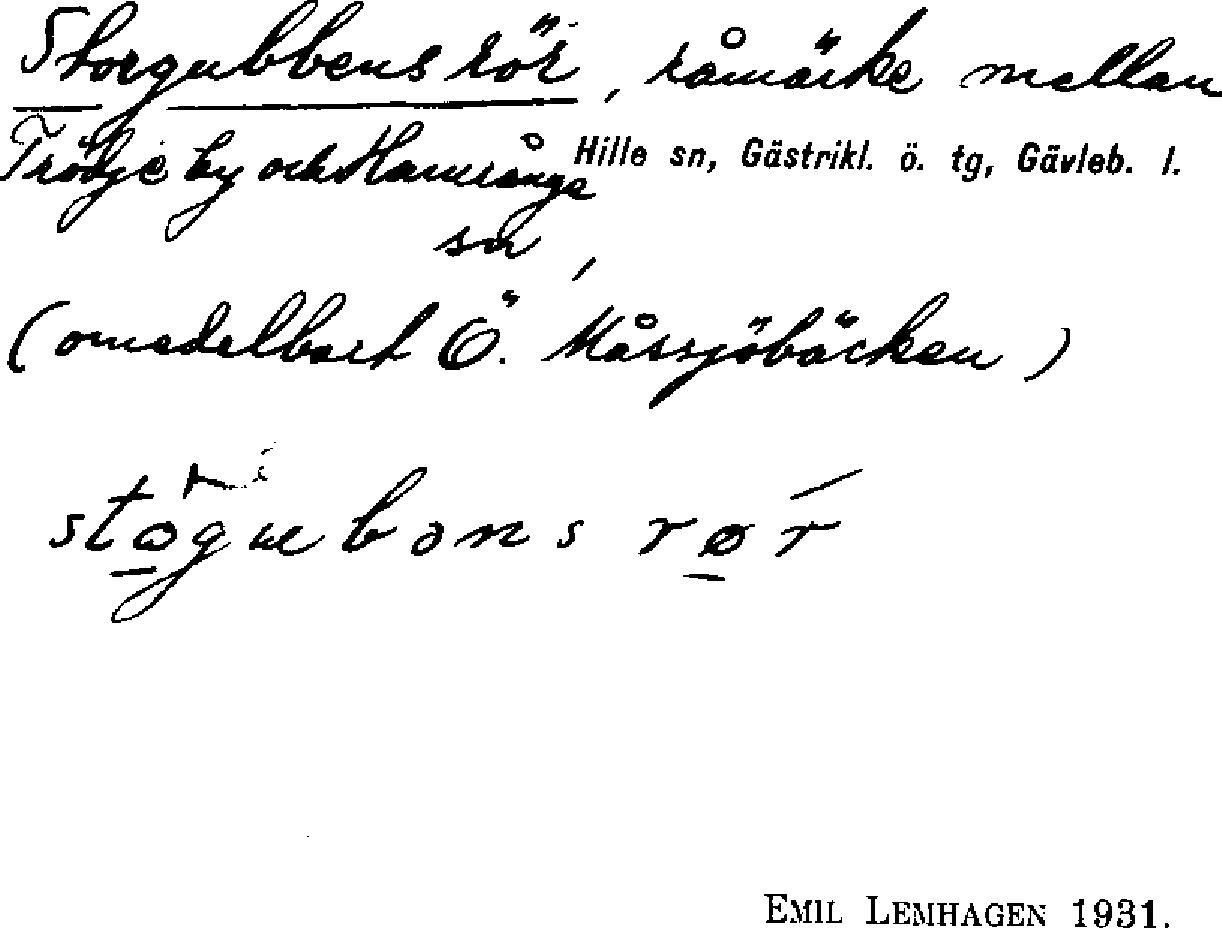 Storgubbens rör, råmärke mellan
Trödje by och Hamrånge Hille sn, Gästrikl. ö. tg, Gävleb. l.
sn,
(omedelbart Ö. Måssjöbäcken)
EMIL LEMHAGEN 1931.